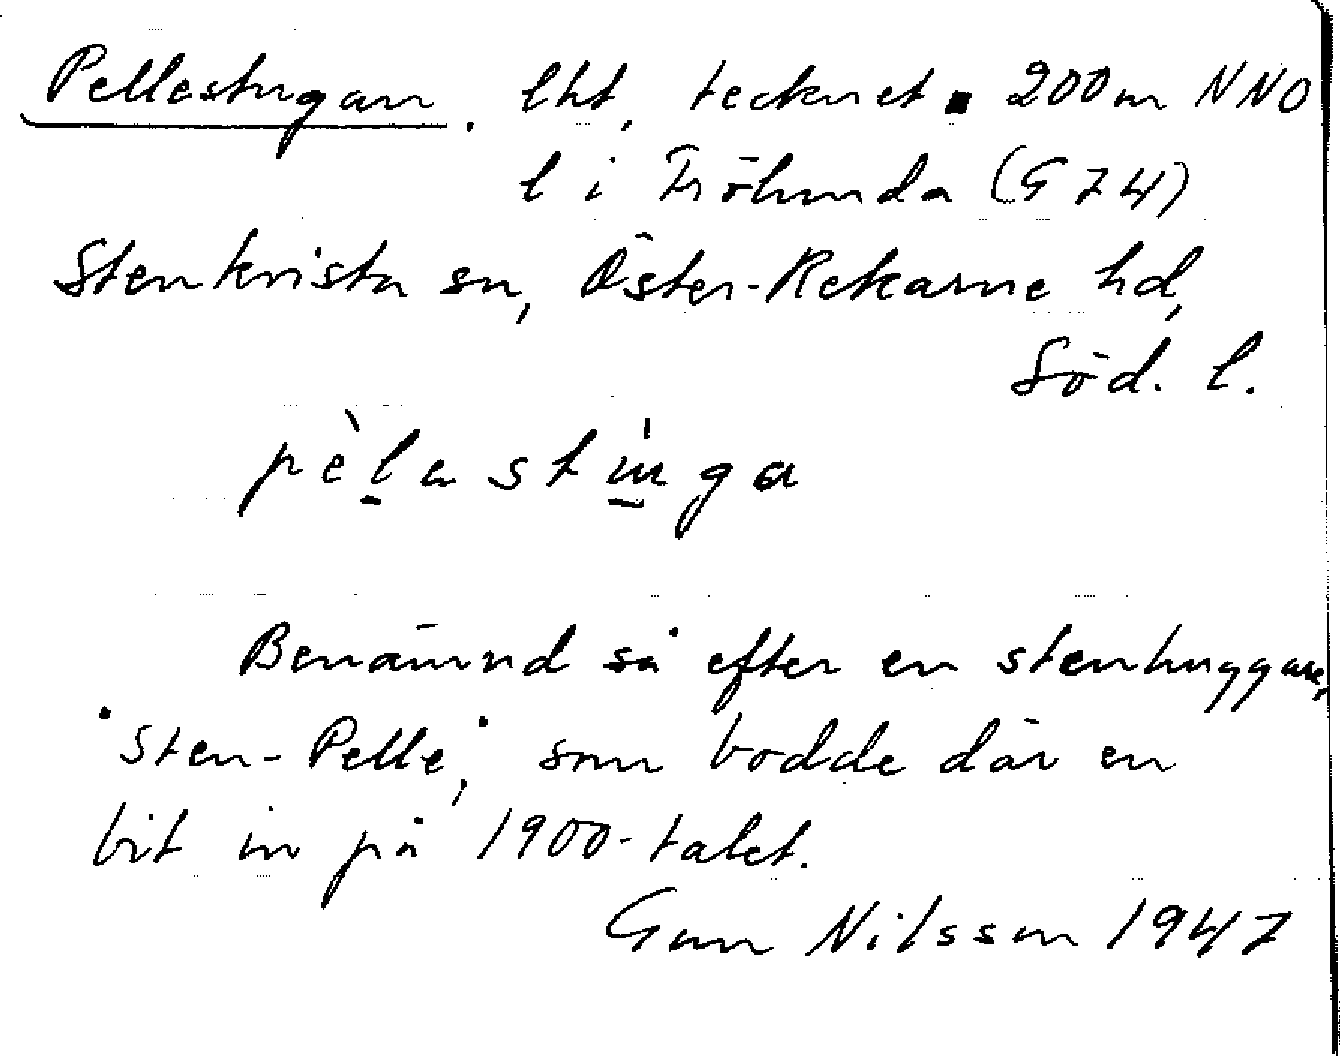 Pellestugan, lht, tecknet ▪ 200 m NNO
l i Fröhunda (G 74)
Stenkvista sn, Öster-Rekarne hd,
Söd. l.
pèl̲astu̲ga
Benämnd så efter en stenhuggare,
"Sten-Pelle", som bodde där en
bit in på 1900-talet.
Gun Nilsson 1947